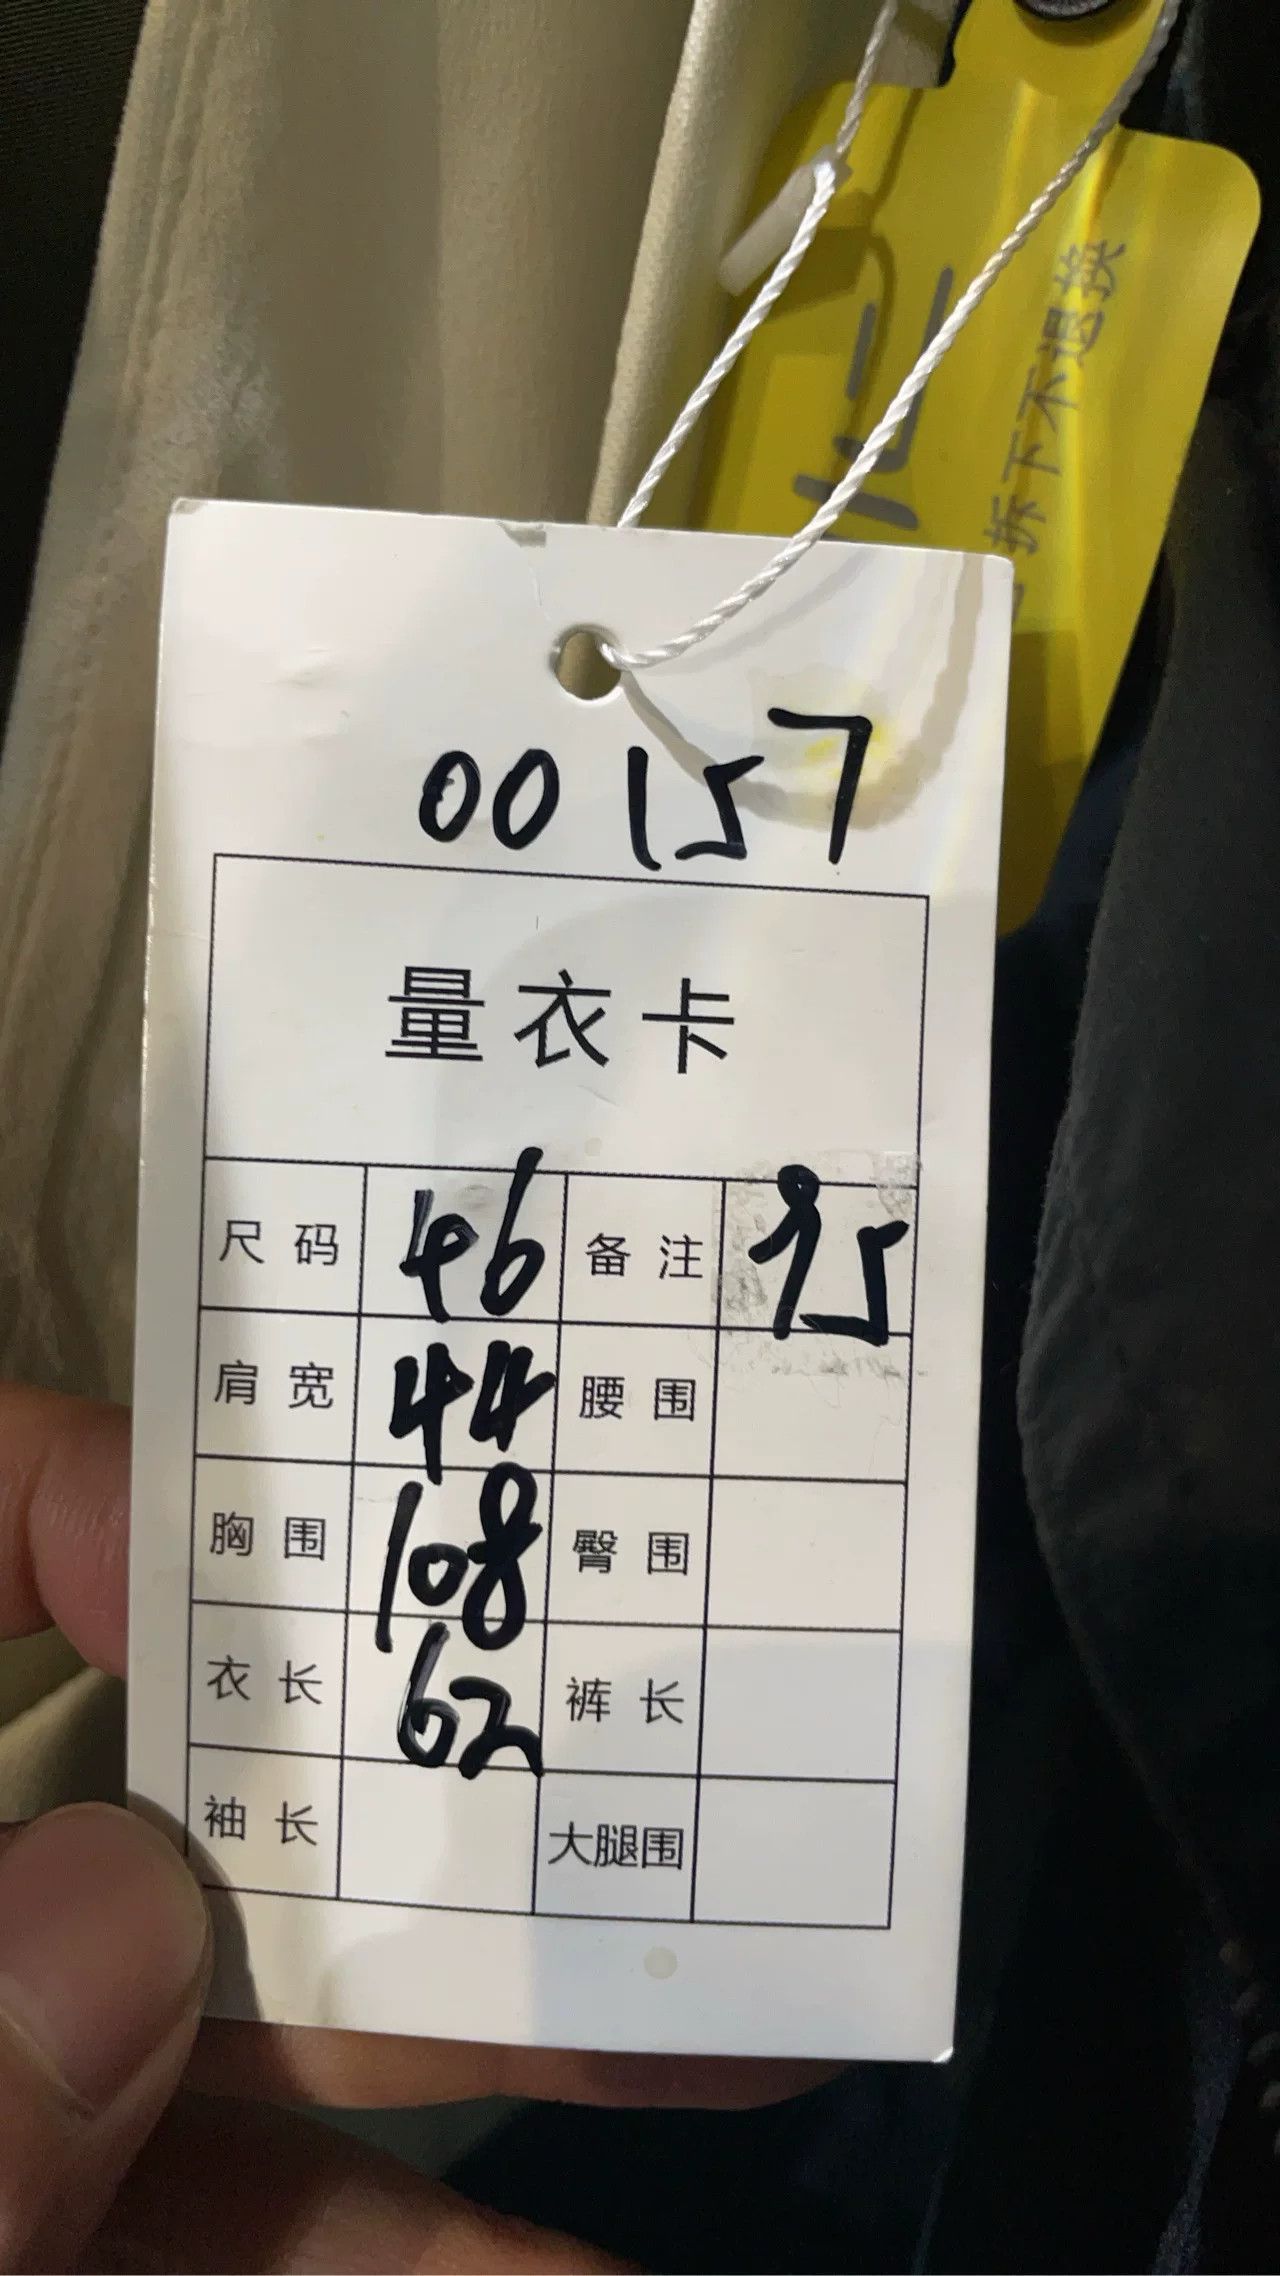 拆下不退换
00157
量衣卡
尺码 46 备注 95
肩宽 44 腰围
胸围 108 臀围
衣长 62 裤长
袖长 大腿围